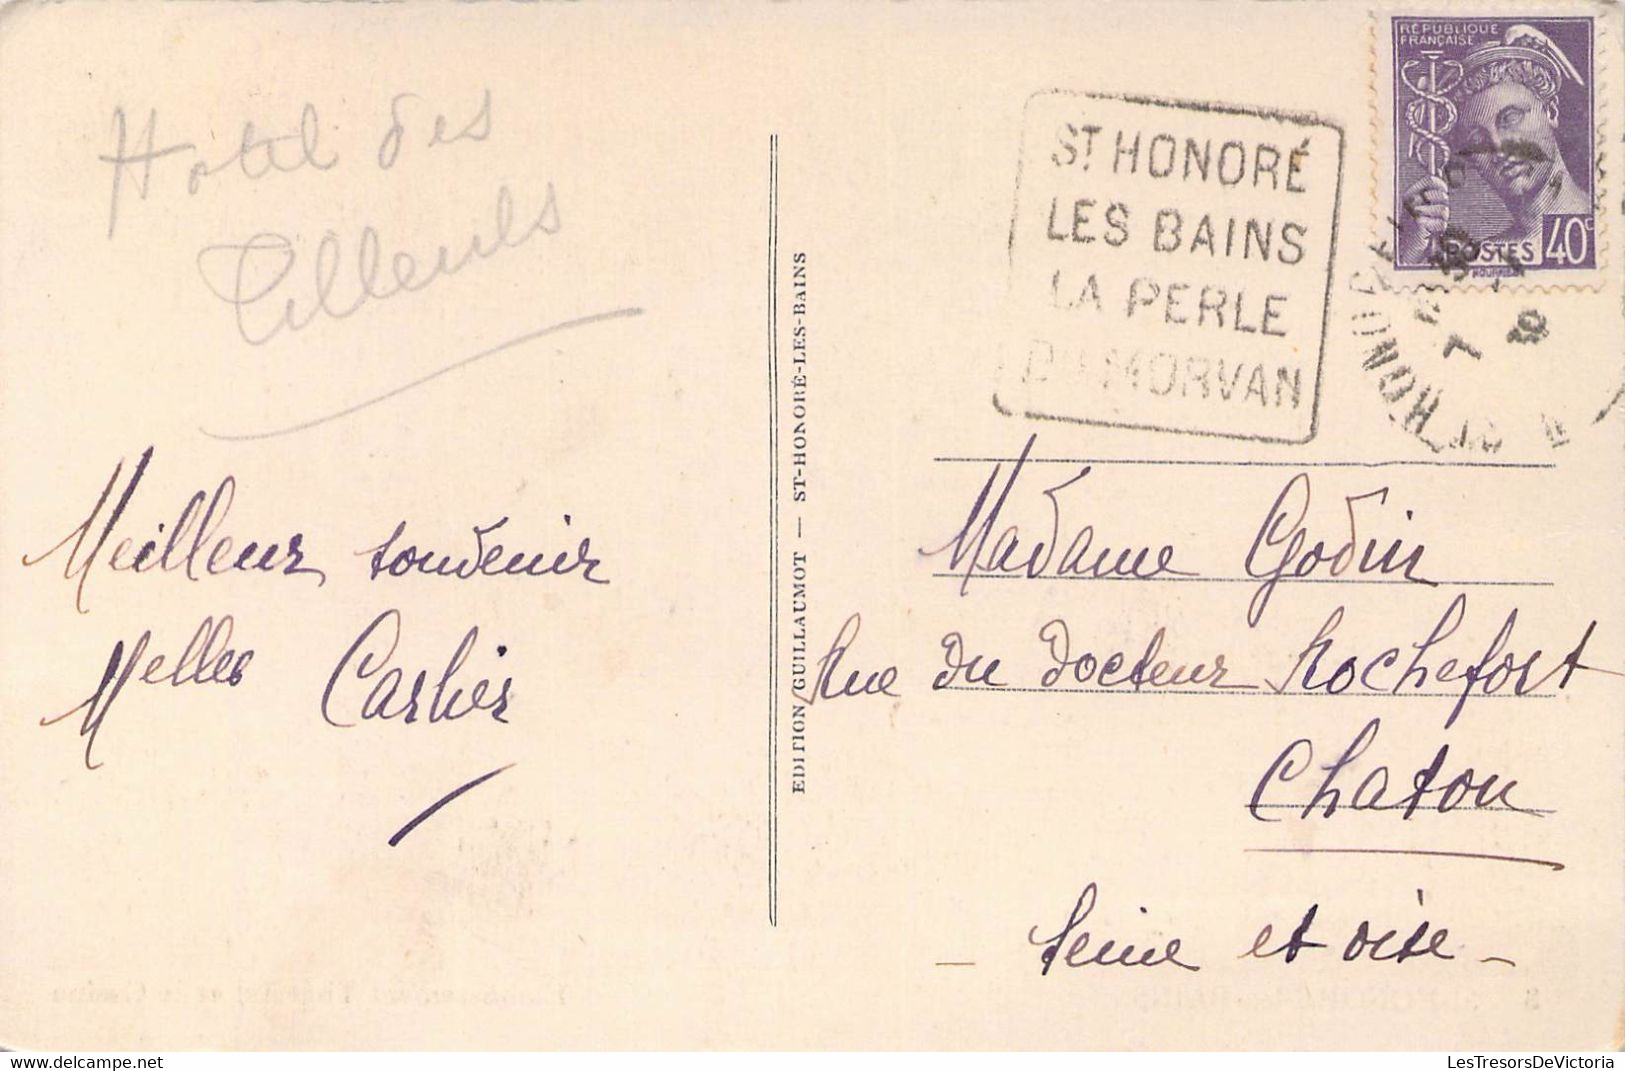 Hotel des
Tilleuls
Meilleur souvenir
Melles Carlier
EDITION GUILLAUMOT — ST-HONORÉ-LES-BAINS
RÉPUBLIQUE
FRANÇAISE
POSTES 40c
ST HONORÉ
LES BAINS
LA PERLE
DU MORVAN
Madame Godin
Rue du docteur Rochefort
Chatou
- Seine et oise -
LesTresorsDeVictoria